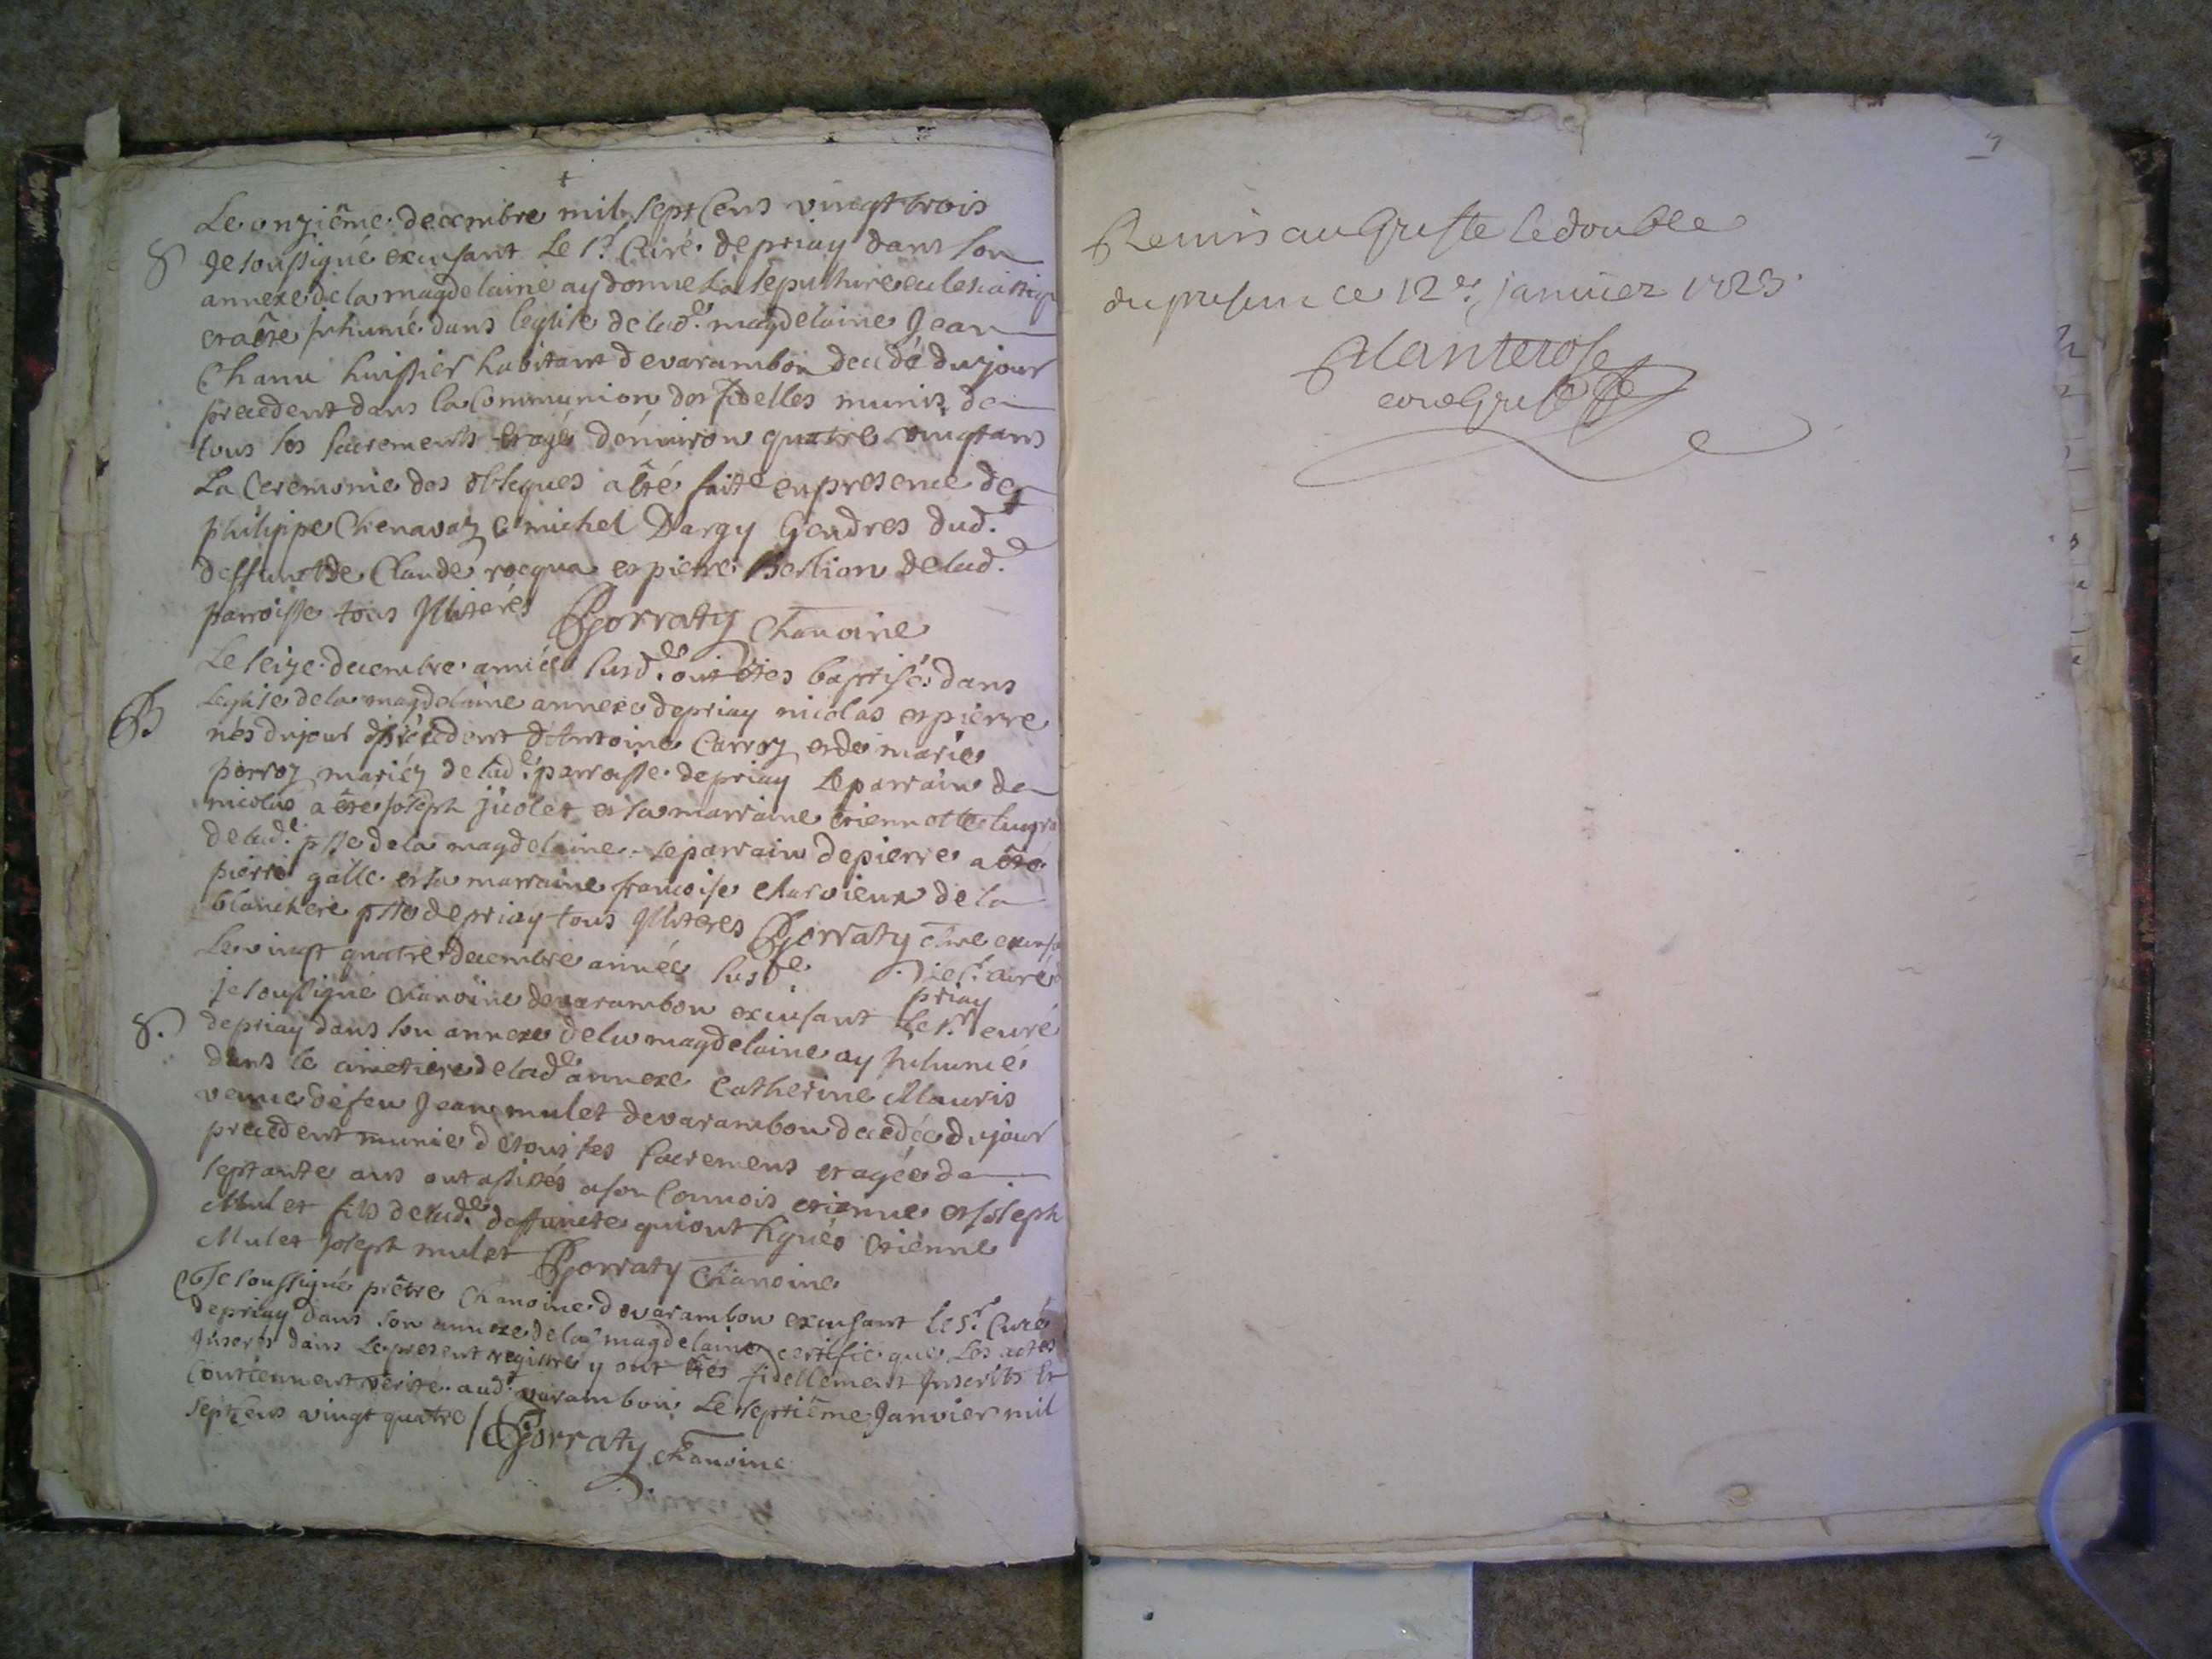 Le onziême decembre mil sept Cens vingt trois
S Je soussigné excusant Le sr. Curé de priay dans son
annexe de la magdelaine ay donné La sepulture eclesiastiq
et a été Inhumé dans l'eglise de lad.e magdelaine Jean
Chanu huissier habitant de varambon decedé du jour
precedent dans la Communion des fidelles munis de
tous les sacrements et agé d'environ quatre vingt ans
La Ceremonie des obseques a êté faite en presence de
philippe Chenavaz et michel Dargy Gendres dud.t
deffunct de Claude rocqua et pierre Bertion de lad.e
parroisse tous Illiterés Gorraty Chanoine
Le seize decembre année susd.e ont étés baptisés dans
B Leglise de la magdelaine annexe de priay nicolas et pierre
nés du jour précédent d'Antoine Carroz et de marie
perroz mariéz de lad.e parroisse de priay Le parrain de
nicolas a êté joseph jicolet et sa marraine etiennette
de lad.e psse de la magdelaine. Le parrain de pierre a êté
pierre gálle et sa marraine francoise charvieux de la
blanchere psse de priay tous Illiteres Gorraty chne excusa
Le vingt quatre decembre année susd.e le sr. curé d
priay
je soussigné chanoine de varambon excusant Le sr. curé
S. de priay dans son annexe de la magdelaine ay Inhumé
dans le cimetiere de lad.e annexe Catherine Mauris
veuve de feu Jean mulet de varambon decedée du jour
precedent munie de tous les sacremens et agée de
septante ans ont assistés a son Convois etienne et joseph
Mulet fils de lad.e deffuncte qui ont signés Etienne
Mulet joseph mulet Gorraty Chanoine
Je soussigné prêtre Chanoine de varambon excusant le sr. Curé
de priay dans son annexe de la magdelaine certifie que Les actes
Inserés dans Le present registre y ont étés fidellement Inscrits et
Contiennent verité. aud.t varambon Le septiême Janvier mil
sept Cens vingt quatre / Gorraty Chanoine
Remis au Greffe le double
du present ce 12e. janvier 1723.